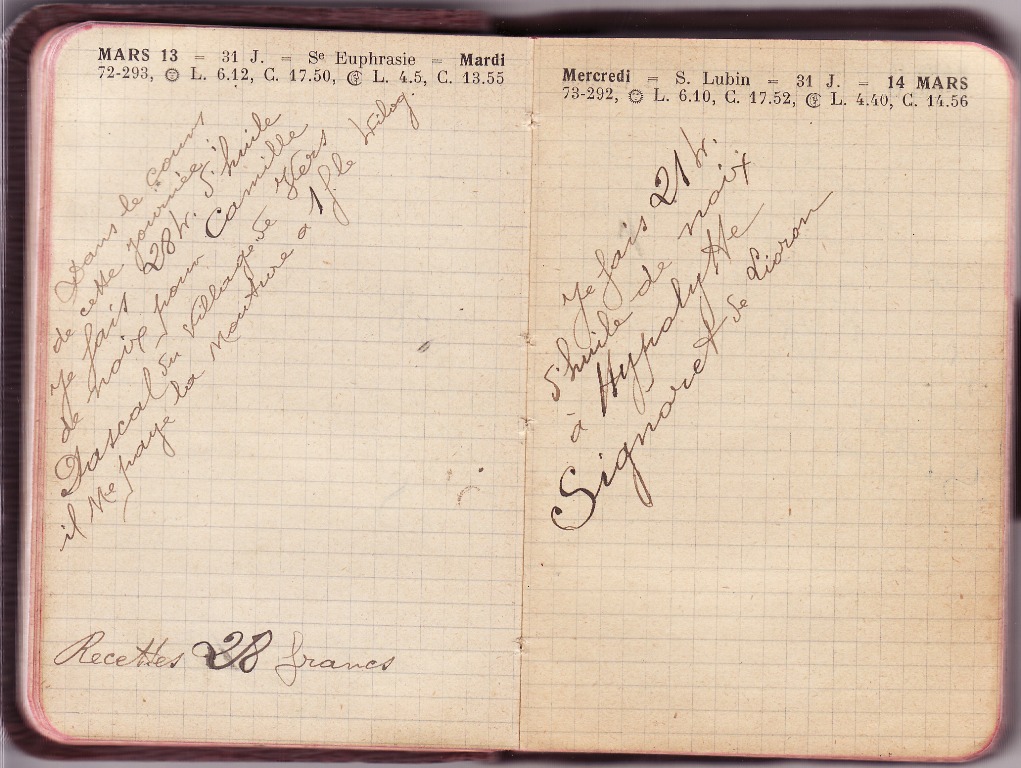 MARS 13 = 31 J. = Sᵉ Euphrasie = Mardi
72-293, L. 6.12, C. 17.50, L. 4.5, C. 13.55
Dans le cours
de cette journée
Je fais 28 k. d'huile
de noix pour Camille
Pascal du village de Vers
il me paye la Mouture à 1 f. le kilog.
Recettes 28 francs
Mercredi = S. Lubin = 31 J. = 14 MARS
73-292, L. 6.10, C. 17.52, L. 4.40, C. 14.56
Je fais 21 k.
d'huile de noix
à Hypolytte
Signoret de Lioron